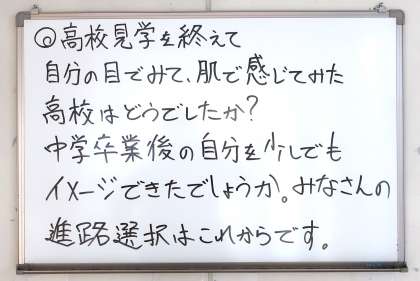 ◎高校見学を終えて
自分の目でみて、肌で感じてみた
高校はどうでしたか?
中学卒業後の自分を少しでも
イメージできたでしょうか。みなさんの
進路選択はこれからです。